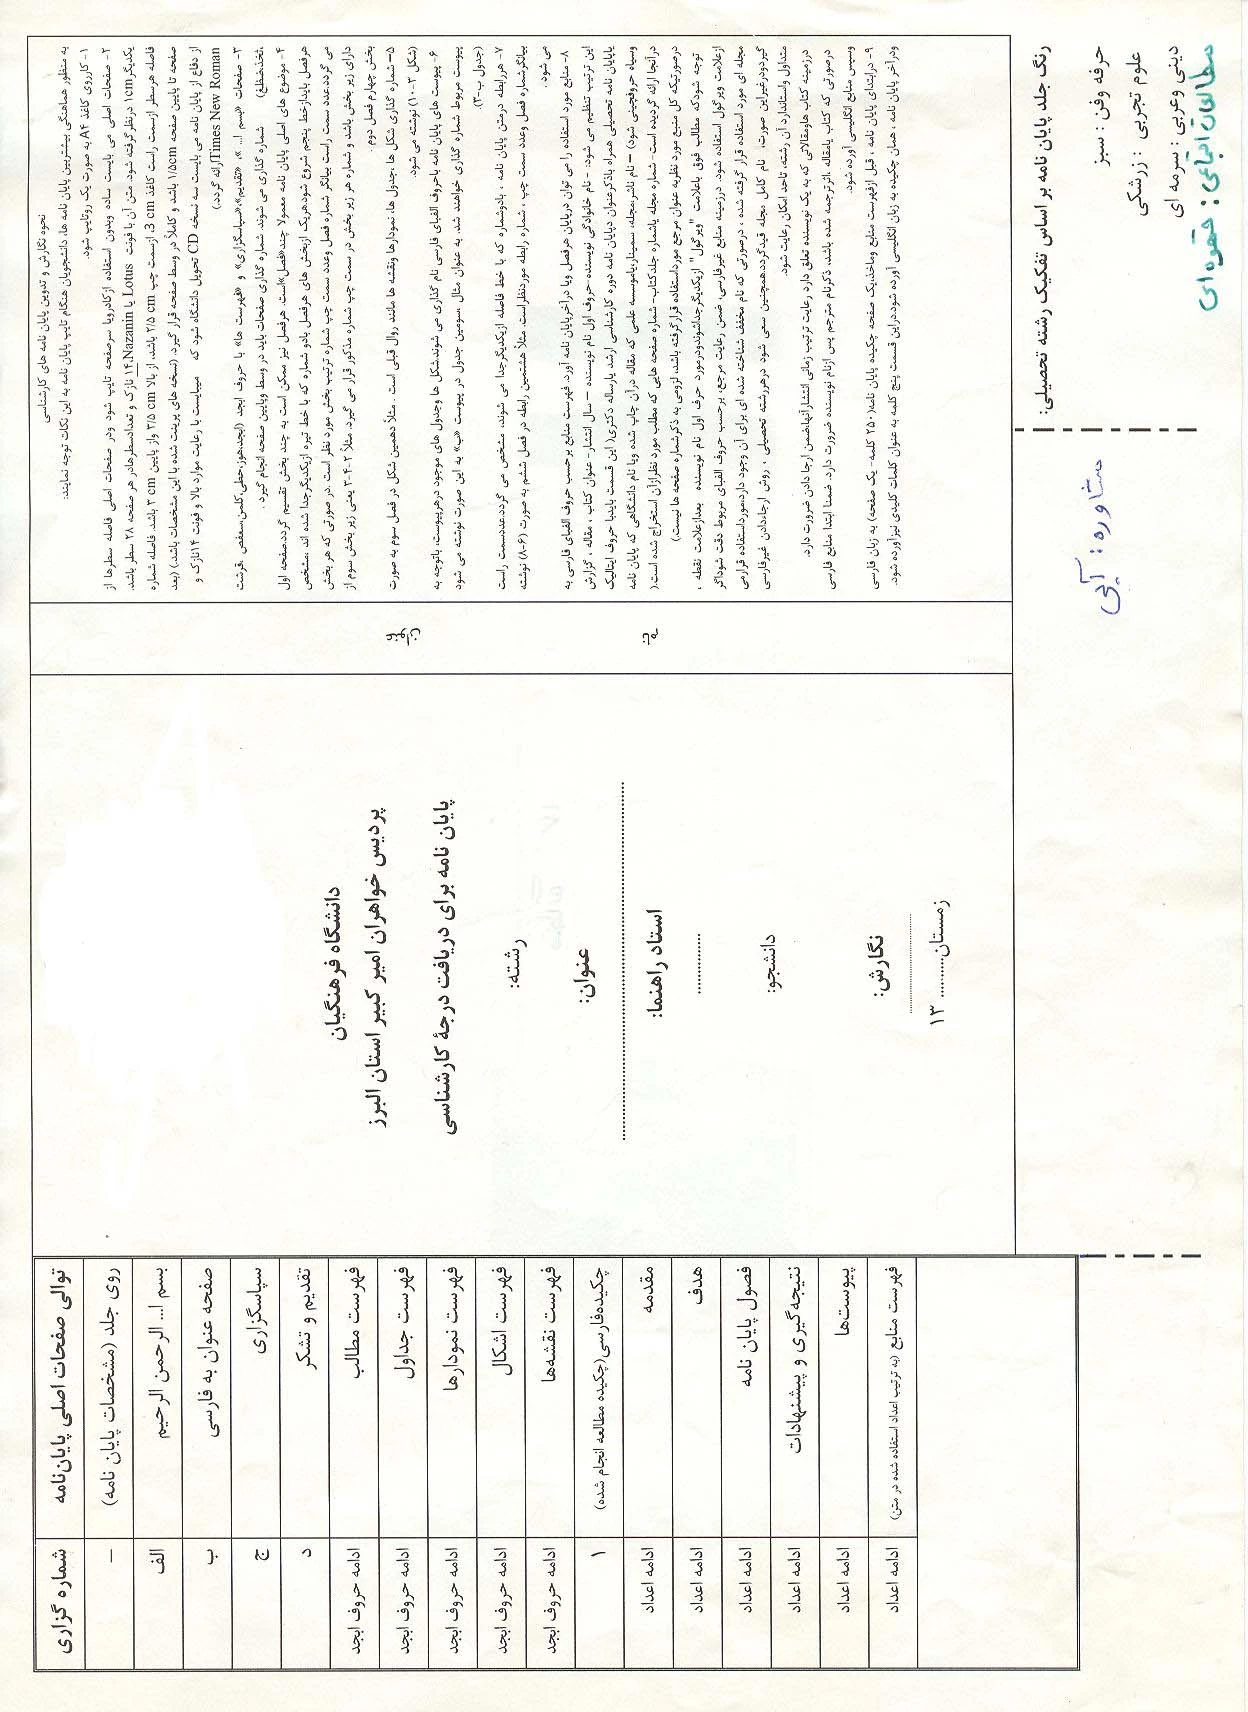 نحوه نگارش و تدوین پایان نامه های کارشناسی
به منظور هماهنگی بیشتربین پایان نامه ها، دانشجویان هنگام تایپ پایان نامه به این نکات توجه نمایند:
۱- کارروی کاغذ A۴ به صورت یک روتایپ شود.
۲- صفحات اصلی می بایست ساده وبدون استفاده ازکادرویا سرصفحه تایپ شود ودر صفحات اصلی فاصله سطرها از
یکدیگر۱cm درنظرگرفته شود. متن آن با فونت Lotus یا Nazanin،۱۴ نازک و تعدادسطرهادر هر صفحه ۲۸ سطر باشد.
فاصله هرسطر ازسمت راست کاغذ 3 cm، ازسمت چپ ۲/۵ cm باشد، از بالا ۲/۵ cm واز پایین ۲ cm باشد. فاصله شماره
صفحه تا پایین صفحه ۱/۵cm باشد و کاملاً در وسط صفحه قرار گیرد. (نسخه های پرینت شده با این مشخصات باشد) (بعد
از دفاع از پایان نامه می بایست سه نسخه CD تحویل دانشگاه شود که میبایست با رعایت موارد بالا و فونت ۱۴نازک و
Times New Romanارائه گردد.)
۳- صفحات «بسم ا... »، «تقدیم»،«سپاسگزاری» و «فهرست ها» با حروف ابجد (ابجد،هوز،حطی،کلمن،سعفص ،قرشت
،ثخذ،ضظغ) شماره گذاری می شوند. شماره گذاری صفحات باید در وسط وپایین صفحه انجام گیرد .
۴- موضوع های اصلی پایان نامه معمولا چند«فصل»است. هرفصل نیز ممکن است به چند بخش تقسیم گردد.صفحه اول
هرفصل بایدازخط پنجم شروع شود.هریک ازبخش های هرفصل بادو شماره که با خط تیره ازیکدیگرجدا شده اند ،مشخص
می گردد.عدد سمت راست بیانگر شماره فصل وعدد سمت چپ شماره ترتیب بخش مورد نظر است در صورتی که هر بخش
دارای زیر بخش باشد و شماره هر زیر بخش در سمت چپ شماره مذکور قرار می گیرد. مثلاً ۲-۴-۳ یعنی زیر بخش سوم از
بخش چهارم فصل دوم .
۵– شماره گذاری شکل ها ،جدول ها، نمودارها ونقشه ها مانند روال قبلی است . مثلاً دهمین شکل در فصل سوم به صورت
(شکل ۳-۱۰) نوشته می شود.
۶- پیوست های پایان نامه باحروف الفبای فارسی نام گذاری می شوند.شکل ها وجدول های موجود درهرپیوست، باتوجه به
پیوست مربوط شماره گذاری خواهند شد. به عنوان مثال ،سومین جدول در پیوست «ب» به این صورت نوشته می شود
(جدول ب-۳)
۷- هررابطه درمتن پایان نامه ، بادوشماره که با خط فاصله ازیکدیگرجدا می شوند، مشخص می گردد.عددسمت راست
بیانگرشماره فصل وعدد سمت چپ ، شماره رابطه موردنظراست. مثلاً هشتمین رابطه در فصل ششم به صورت (۶-۸) نوشته
می شود.
۸- منابع مورد استفاده را می توان درپایان هرفصل ویا درآخرپایان نامه آورد. فهرست منابع برحسب حروف الفبای فارسی به
این ترتیب تنظیم می شود: - نام خانوادگی نویسنده،حروف اول نام نویسنده – سال انتشار- عنوان کتاب ، مقاله ، گزارش
یاپایان نامه تحصیلی همراه باذکرعنوان «پایان نامه دوره کارشناسی ارشد یارساله دکتری( این قسمت بایدبا حروف ایتالیک
وسیاه حروفچینی شود) – نام ناشر،مجله، سمینار،یاموسسه علمی که مقاله درآن چاپ شده ویا نام دانشگاهی که پایان نامه
درآنجا ارائه گردیده است- شماره مجله یاشماره جلدکتاب- شماره صفحه هایی که مطلب مورد نظرازآن استخراج شده است.(
درصورتیکه کل منبع مورد نظربه عنوان مرجع مورداستفاده قرارگرفته باشد، لزومی به ذکرشماره صفحه ها نیست.)
توجه شودکه مطالب فوق باعلامت "ویرگول" ازیکدیگرجداشوندودرمورد حرف اول نام نویسنده بعدازعلامت نقطه ،
ازعلامت ویرگول استفاده شود. درزمینه منابع غیرفارسی، ضمن رعایت مرجع، برحسب حروف الفبای مربوط دقت شوداگر
مجله ای مورد استفاده قرار گرفته شده ، درصورتی که نام مخفف شناخته شده ای برای آن وجود دارد،مورداستفاده قرارمی
گیردودرغیراین صورت، نام کامل مجله قیدگردد.همچنین سعی شود درهررشته تحصیلی ، روش ارجاءدادن غیرفارسی
متداول واستاندارد آن رشته، تاحد امکان رعایت شود.
درزمینه کتاب هاومقالاتی که به یک نویسنده تعلق دارد رعایت ترتیب زمانی انتشارآنهاضمن ارجاءدادن ضرورت دارد.
درصورتی که کتاب یامقاله ،اثرترجمه شده باشد، ذکرنام مترجم پس ازنام نویسنده ضرورت دارد. ضمنا ابتدا منابع فارسی
وسپس منابع انگلیسی آورده شود.
۹- درابتدای پایان نامه ، قبل ازفهرست منابع وماخذ،یک صفحه چکیده پایان نامه( ۲۵۰ کلمه- یک صفحه) به زبان فارسی
ودرآخر پایان نامه ، همان چکیده به زبان انگلیسی آورده شود.دراین قسمت پنج کلمه به عنوان کلمات کلیدی نیزآورده شود.
رنگ جلد پایان نامه بر اساس تفکیک رشته تحصیلی:
حرفه وفن : سبز
علوم تجربی : زرشکی
دینی وعربی : سرمه ای
مطالعات اجتماعی : قهوه ای
مشاوره : آبی
دانشگاه فرهنگیان
پردیس خواهران امیر کبیر استان البرز
پایان نامه برای دریافت درجۀ کارشناسی
رشته:
عنوان:
استاد راهنما:
دانشجو:
نگارش:
زمستان.......... ۱۳
شماره گزاری توالی صفحات اصلی پایان‌نامه
– روی جلد (مشخصات پایان نامه)
الف بسم ا... الرحمن الرحیم
ب صفحه عنوان به فارسی
ج سپاسگزاری
د تقدیم و تشکر
ادامه حروف ابجد فهرست مطالب
ادامه حروف ابجد فهرست جداول
ادامه حروف ابجد فهرست نمودارها
ادامه حروف ابجد فهرست اشکال
ادامه حروف ابجد فهرست نقشه‌ها
۱ چکیده‌فارسی(چکیده مطالعه انجام شده)
ادامه اعداد مقدمه
ادامه اعداد هدف
ادامه اعداد فصول پایان نامه
ادامه اعداد نتیجه‌گیری و پیشنهادات
ادامه اعداد پیوست‌ها
ادامه اعداد فهرست منابع (به ترتیب اعداد استفاده شده در متن)